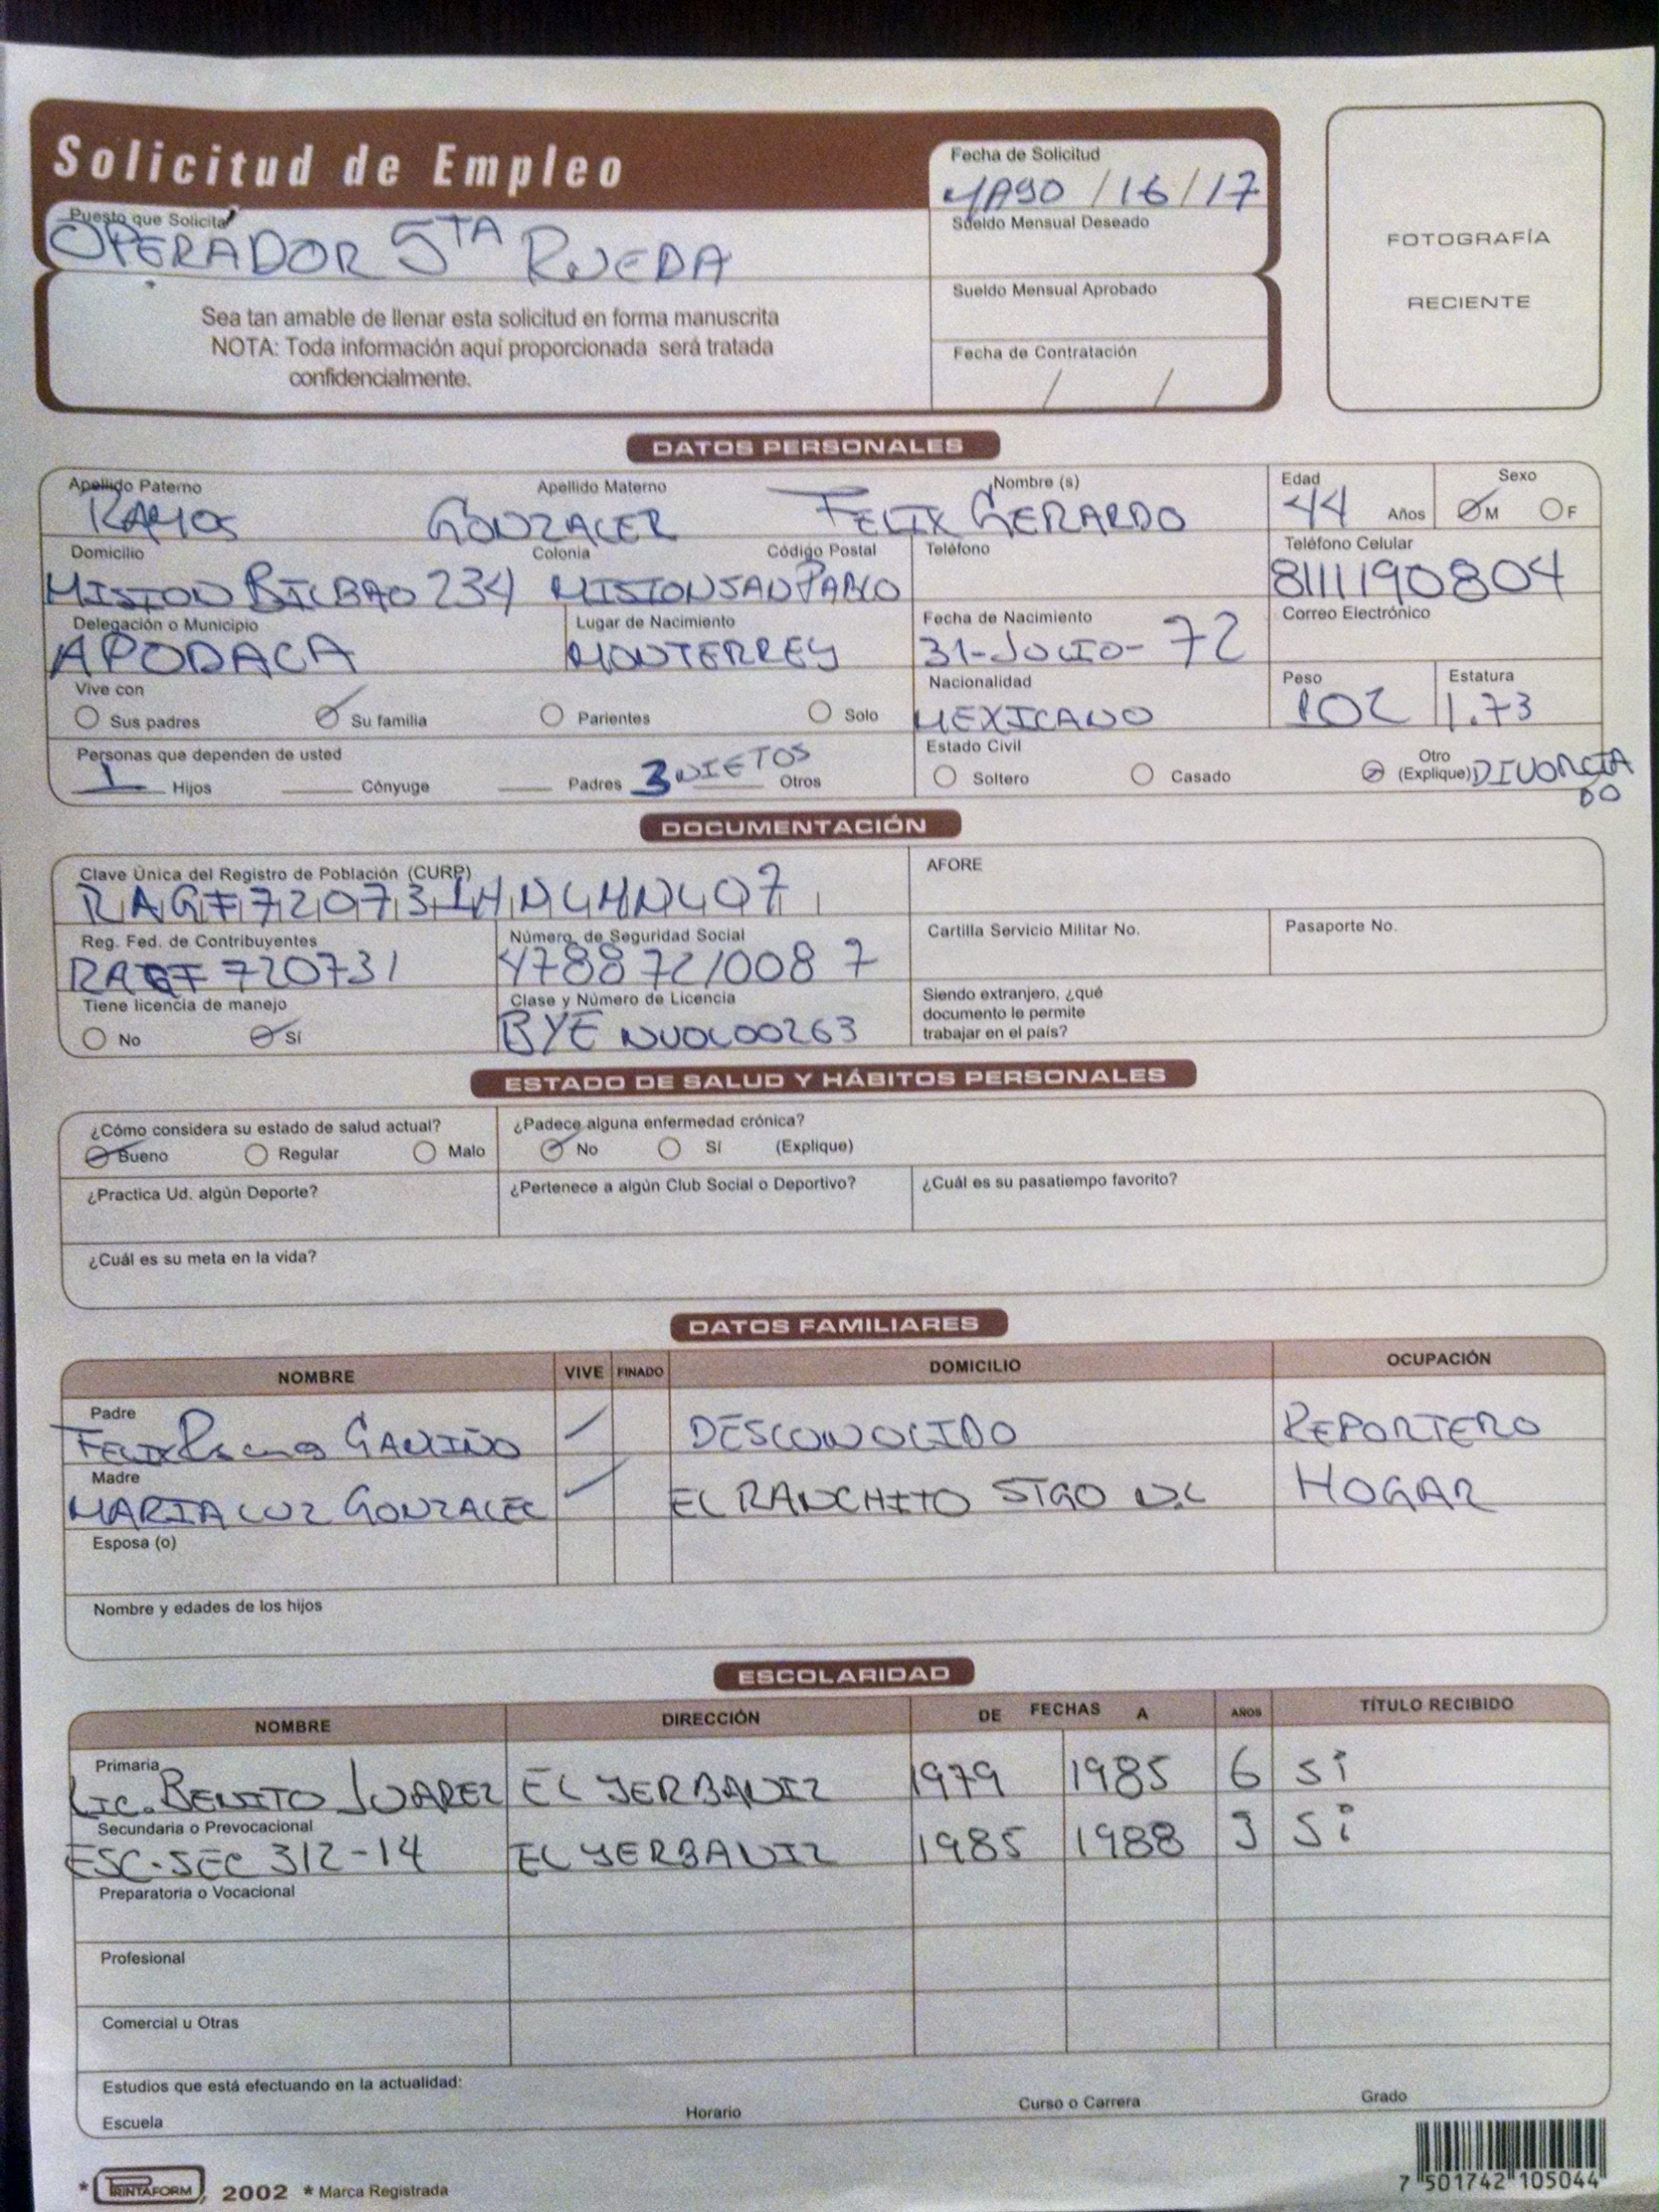 Solicitud de Empleo
Fecha de Solicitud
MAYO / 16 / 17
Puesto que Solicita
OPERADOR 5TA RUEDA
Sueldo Mensual Deseado
FOTOGRAFÍA
RECIENTE
Sueldo Mensual Aprobado
Sea tan amable de llenar esta solicitud en forma manuscrita
NOTA: Toda información aquí proporcionada será tratada
confidencialmente.
Fecha de Contratación
/ /
DATOS PERSONALES
Apellido Paterno Apellido Materno Nombre (s) Edad Sexo
RAMOS GONZALEZ FELIX GERARDO 44 Años M F
Domicilio Colonia Código Postal Teléfono Teléfono Celular
MISION BILBAO 234 MISION SAN PABLO 8111190804
Delegación o Municipio Lugar de Nacimiento Fecha de Nacimiento Correo Electrónico
APODACA MONTERREY 31-JULIO-72
Vive con Nacionalidad Peso Estatura
Sus padres Su familia Parientes Solo MEXICANO 102 1.73
Personas que dependen de usted Estado Civil
1 Hijos Cónyuge Padres 3 NIETOS Otros Soltero Casado Otro (Explique) DIVORCIA
DO
DOCUMENTACIÓN
Clave Única del Registro de Población (CURP) AFORE
RAGF720731HNLMNL07
Reg. Fed. de Contribuyentes Número de Seguridad Social Cartilla Servicio Militar No. Pasaporte No.
RAGF 720731 47887210087
Tiene licencia de manejo Clase y Número de Licencia Siendo extranjero, ¿qué
documento le permite
trabajar en el país?
No Sí BYE NUOL00263
ESTADO DE SALUD Y HÁBITOS PERSONALES
¿Cómo considera su estado de salud actual? ¿Padece alguna enfermedad crónica?
Bueno Regular Malo No Sí (Explique)
¿Practica Ud. algún Deporte? ¿Pertenece a algún Club Social o Deportivo? ¿Cuál es su pasatiempo favorito?
¿Cuál es su meta en la vida?
DATOS FAMILIARES
NOMBRE VIVE FINADO DOMICILIO OCUPACIÓN
Padre
FELIX Ramos GAUIÑO DESCONOCIDO REPORTERO
Madre
MARIA LUZ GONZALEZ EL RANCHITO STGO N.L HOGAR
Esposa (o)
Nombre y edades de los hijos
ESCOLARIDAD
NOMBRE DIRECCIÓN DE FECHAS A AÑOS TÍTULO RECIBIDO
Primaria
LIC. BENITO JUAREZ EL YERBANIZ 1979 1985 6 Si
Secundaria o Prevocacional
ESC. SEC 312-14 EL YERBANIZ 1985 1988 3 Si
Preparatoria o Vocacional
Profesional
Comercial u Otras
Estudios que está efectuando en la actualidad:
Escuela Horario Curso o Carrera Grado
* PRINTAFORM, 2002 * Marca Registrada
7 501742 105044